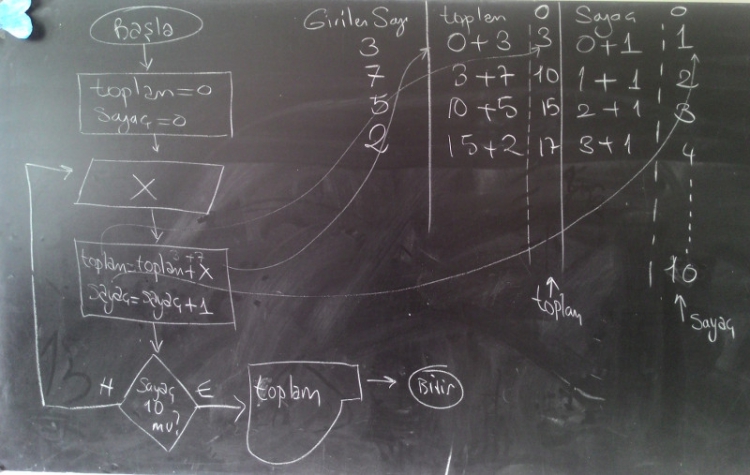 Başla
toplam=0
Sayaç=0
X
3 +7
toplam=toplam+X
sayaç=sayaç+1
Sayaç
10
mu?
H
E
toplam
Bitir
Girilen Sayı toplam 0 Sayaç 0
3 0+3 3 0+1 1
7 3+7 10 1+1 2
5 10+5 15 2+1 3
2 15+2 17 3+1 4
10
toplam
Sayaç